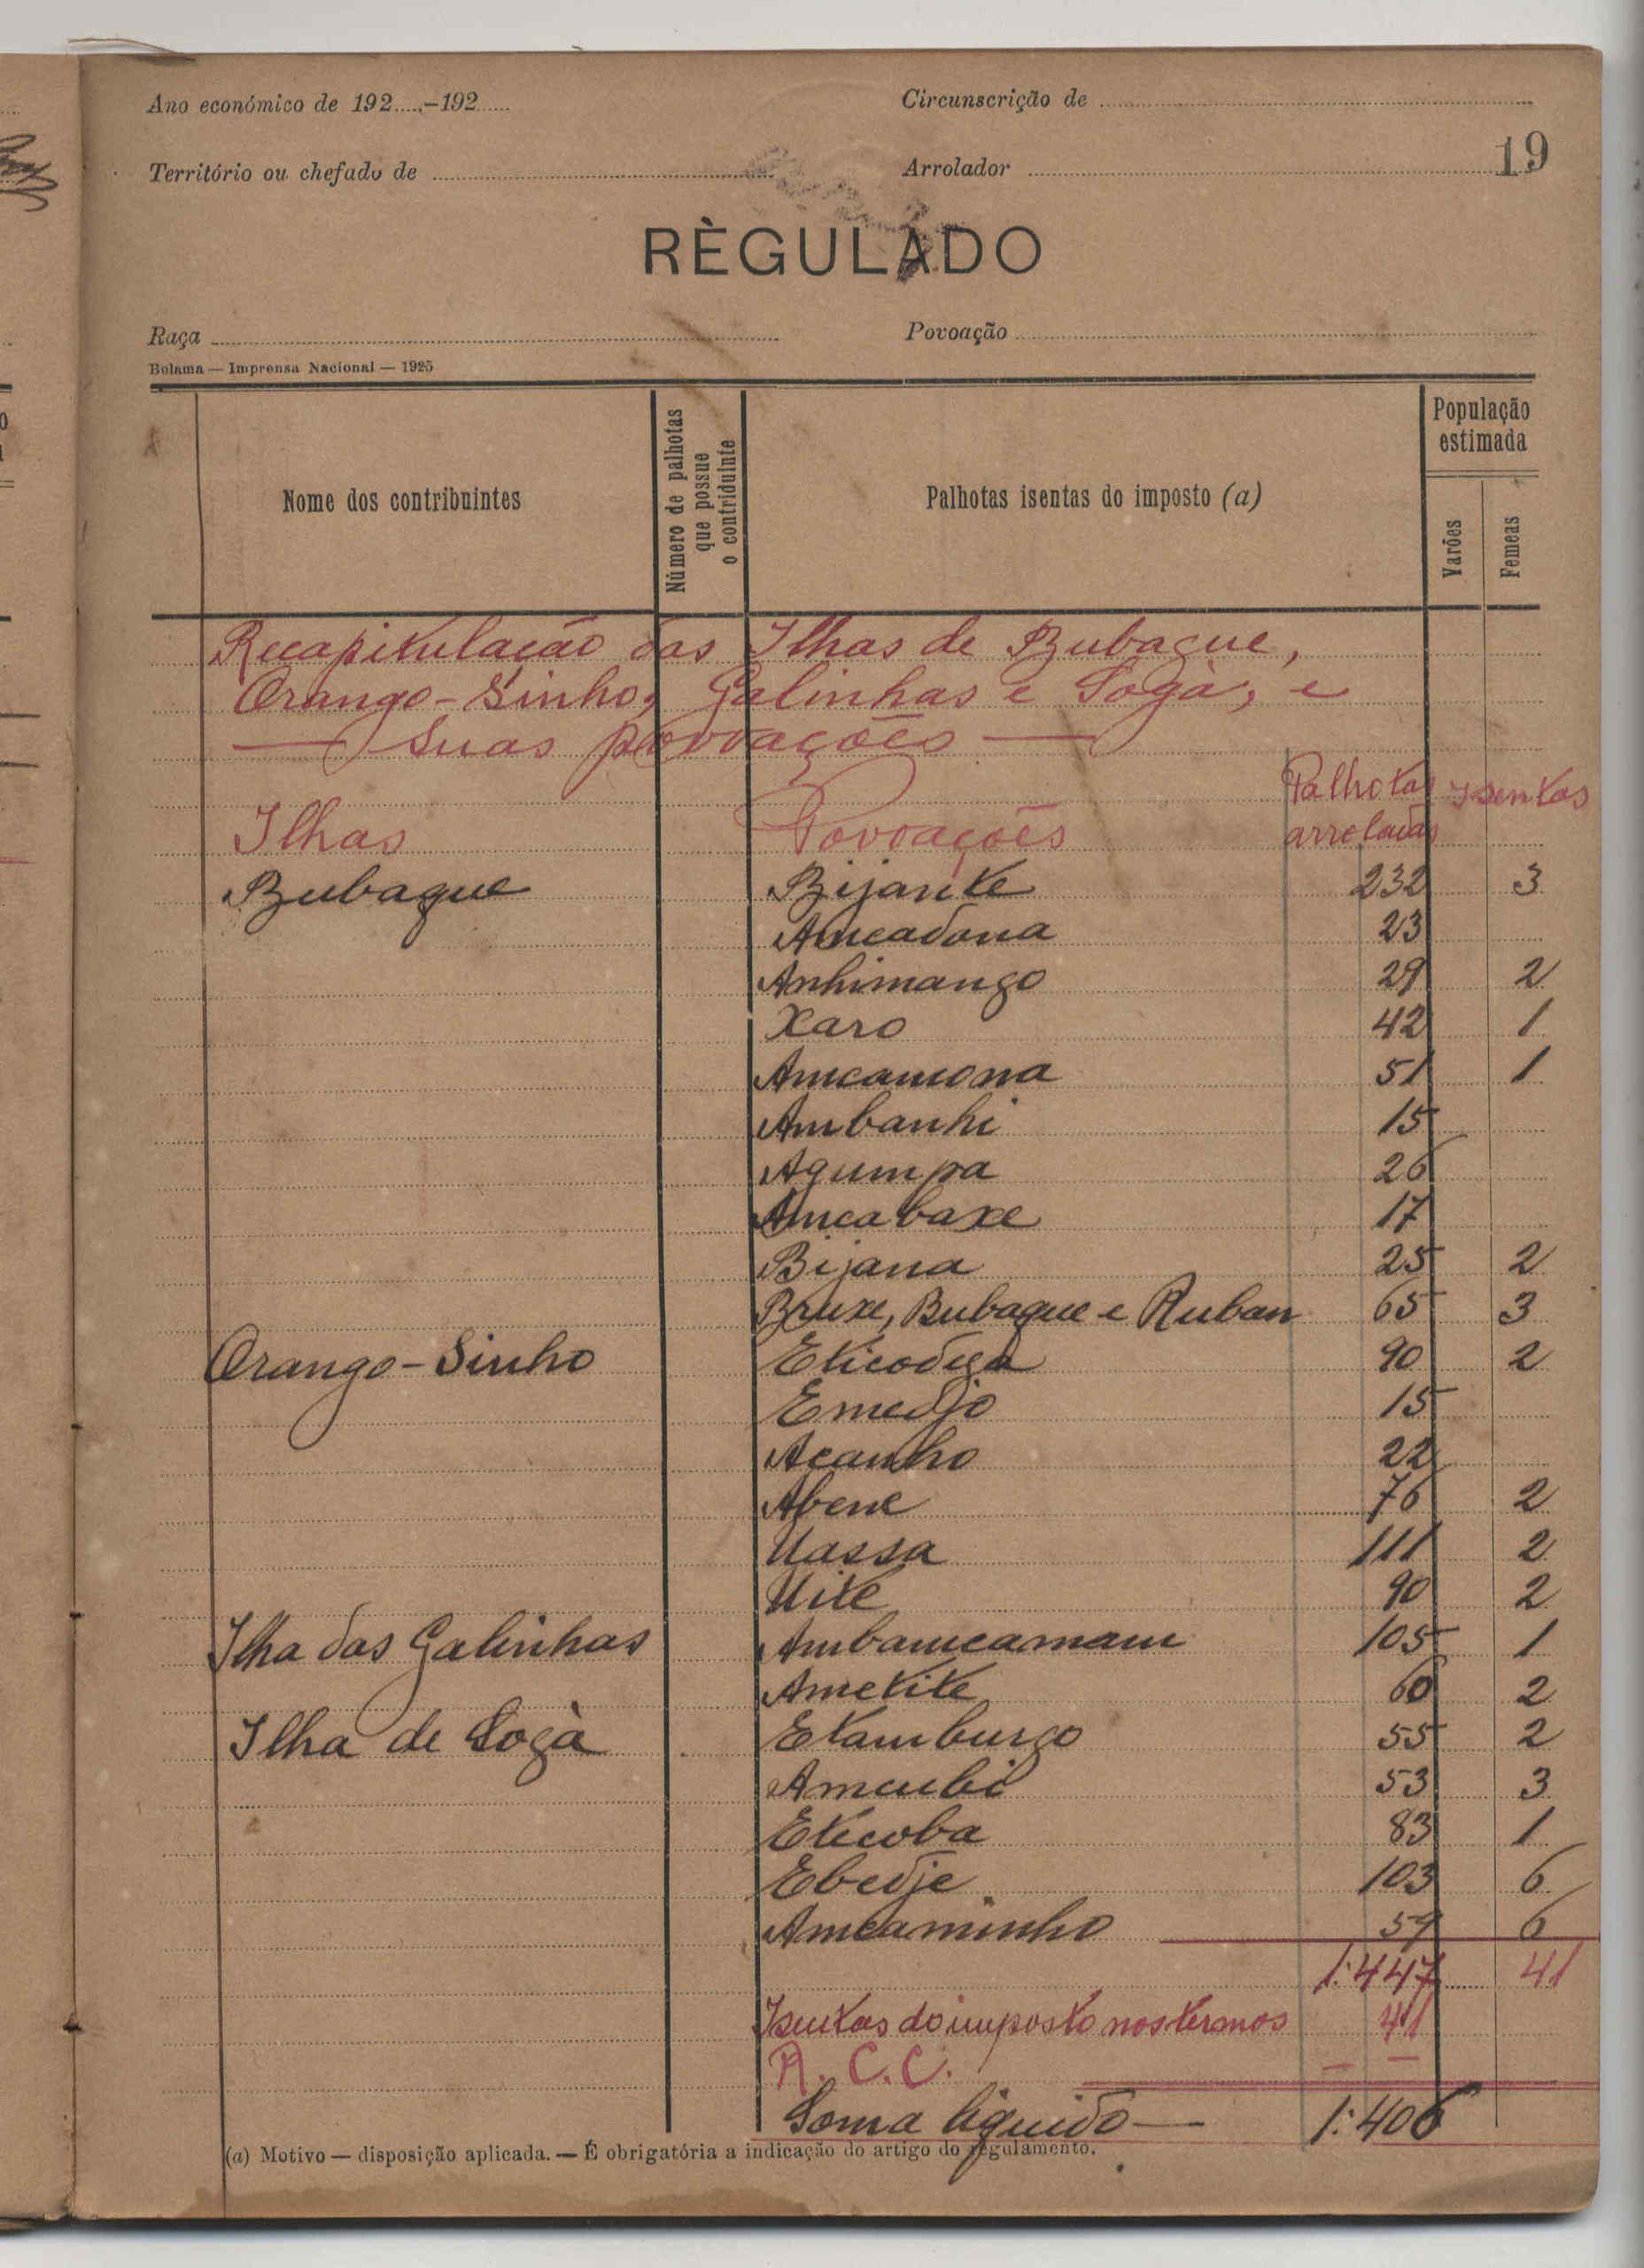 Ano económico de 192.....-192.....
Circunscrição de
Território ou chefado de
Arrolador
19
RÈGULADO
Raça
Povoação
Bolama — Imprensa Nacional — 1925
Nome dos contribuintes
Número de palhotas que possue o contriduinte
Palhotas isentas do imposto (a)
População estimada
Varões
Femeas
Recapitulacão das Ilhas de Bubaque,
Orango-Sinho, Galinhas e Sogà, e
— Suas povoações —
Ilhas Povoações Palhotas arroladas Isentas
Bubaque Bijante 232 3
Amcadona 23
Anhimango 29 2
Xaro 42 1
Amcamona 51 1
Ambanhi 15
Agumpa 26
Amcabaxe 17
Bijana 25 2
Bruxe, Bubaque e Ruban 65 3
Orango-Sinho Eticodega 90 2
Emedjo 15
Acanho 22
Abene 76 2
Uassa 111 2
Uite 90 2
Ilha das Galinhas Ambamcamam 105 1
Ametite 60 2
Ilha de Sogà Etamburgo 55 2
Amcubi 53 3
Eticoba 83 1
Ebedje 103 6
Amcaminho 59 6
1:447 41
Isentas do imposto nos termos 41
R. C. C. — —
Soma liquido — 1:406
(a) Motivo — disposição aplicada. — É obrigatória a indicação do artigo do regulamento.